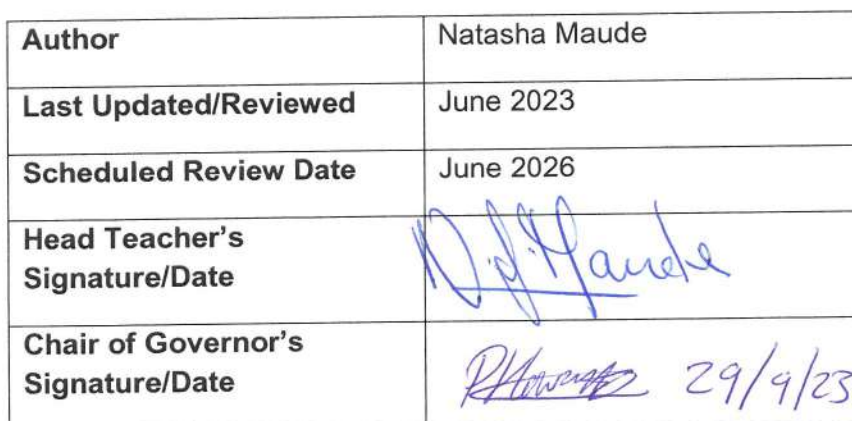 Author Natasha Maude
Last Updated/Reviewed June 2023
Scheduled Review Date June 2026
Head Teacher's
Signature/Date
Maude
Chair of Governor's
Signature/Date
29/9/23